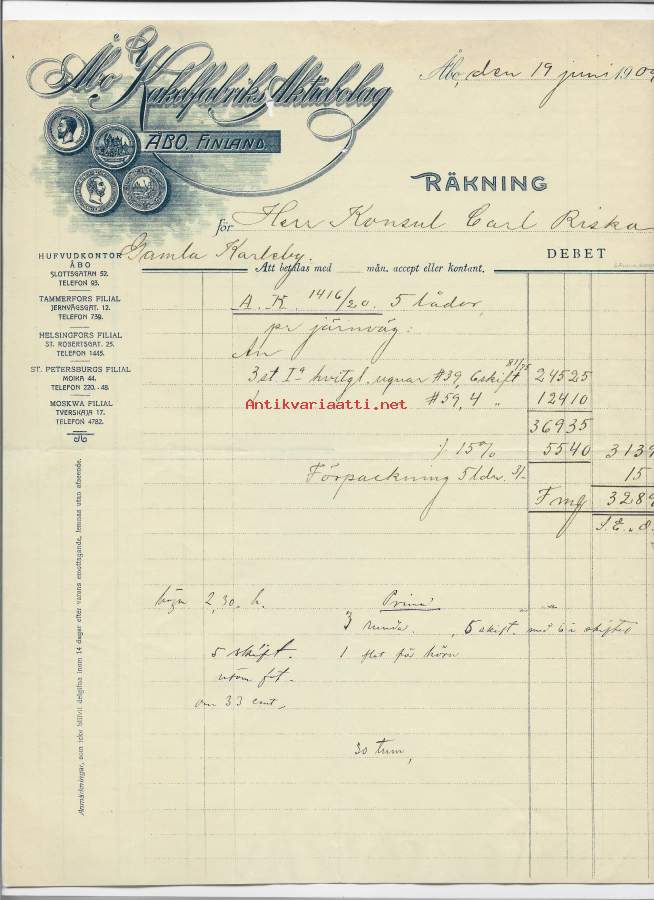 Åbo Kakelfabriks Aktiebolag
ÅBO, FINLAND.
Åbo, den 19 juni 1909
RÄKNING
för Herr Konsul Carl Riska
Gamla Karleby.
HUFVUDKONTOR
ÅBO
SLOTTSGATAN 52.
TELEFON 93.
TAMMERFORS FILIAL
JERNVÄGSGAT. 12.
TELEFON 739.
HELSINGFORS FILIAL
ST. ROBERTSGAT. 25.
TELEFON 1445.
ST. PETERSBURGS FILIAL
MOIKA 44.
TELEFON 220.-48.
MOSKWA FILIAL
TVERSKAJA 17.
TELEFON 4782.
Anmärkningar, som icke blifvit delgifna inom 14 dagar efter varans emottagande, lemnas utan afseende.
Att betalas med mån. accept eller kontant.
DEBET
A. K. 1416/20. 5 lådor,
pr järnväg:
An
3 st Iª hvitgl. ugnar #39, 6 skift 81/75 245 25
1 #59, 4 " 124 10
369 35
./. 15% 55 40 313 9
Förpackning 5 ldr. 3/- 15
Fmg 328 9
S. E. & O.
Antikvariaatti.net
högn 2,30. h. Prima
3 runda. , 5 skift. med 6 a skiftet
5 skift. 1 flat för hörn
utom fot.
om 33 cent,
30 tum,